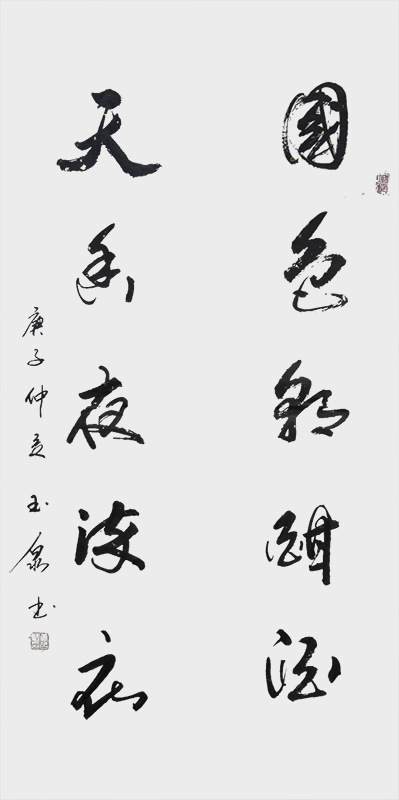 國色朝酣酒
天香夜染衣
庚子仲夏 玉泉書